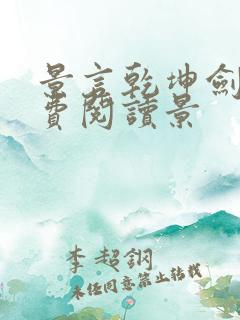 景言乾坤劍
費閱讀景
李超鋼
未經同意禁止轉載